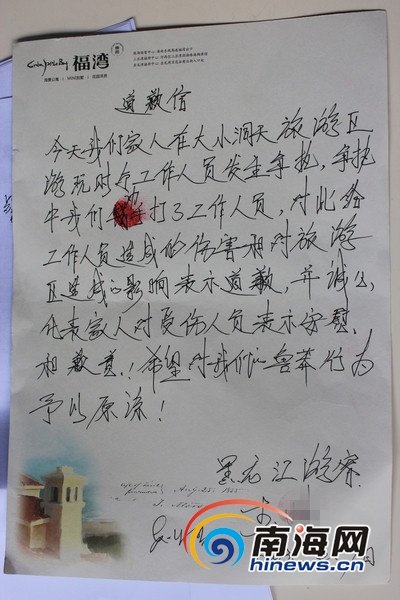 福湾
海景公寓 | MINI别墅 | 花园洋房
道歉信
今天我们家人在大小洞天旅游区
游玩时与工作人员发生争执,争执
中我们动手打了工作人员,对此给
工作人员造成的伤害和对旅游
区造成的影响表示道歉,并诚心
代表家人对受伤人员表示安慰
和歉意!希望对我们的鲁莽行为
予以原谅!
黑龙江游客
Aug-25. 1885
南海网
hinews.cn